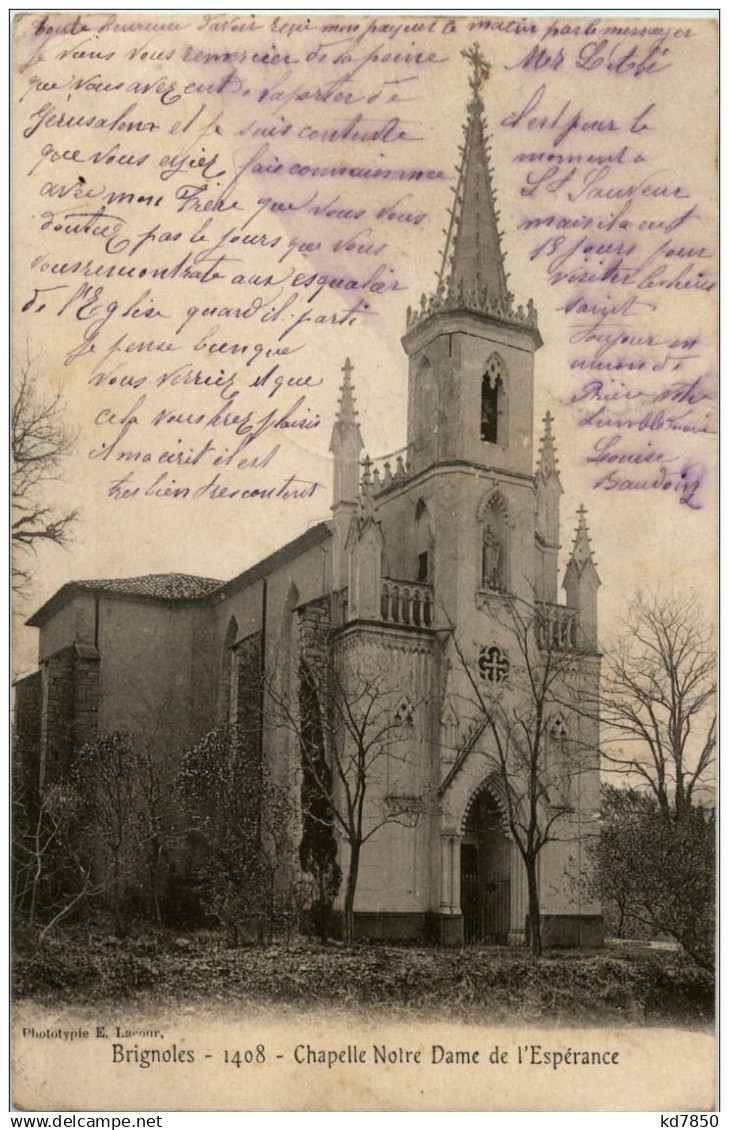 toute heureuse d'avoir reçu mon paquet le matin par le messager
Je viens vous remercier de la peine
que vous avez eut de l'aporter de
Jérusalem et je suis contente
que vous ayiez fais connaissance
avec mon Frère que vous vous
doutiez pas le jours que vous
vous remontrate aux esqualier
de l'Eglise quand il parti
Je pense bien que
vous verrez et que
cela vous fera plaisir
il m'a écrit il est
tres bien tres content
Mr L'abé
c'est pour le
moment a
St Sauveur
mais ila eut
15 jours pour
visiter les liens
saint
toujour en
union de
Prière votre
humble
Louise
Baudoin
Phototypie E. Lacour,
Brignoles - 1408 - Chapelle Notre Dame de l'Espérance
kd7850